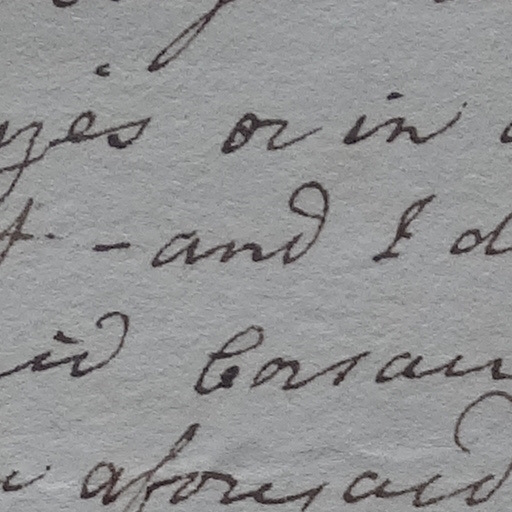 or in
- and I d
id Corsan
aforesaid